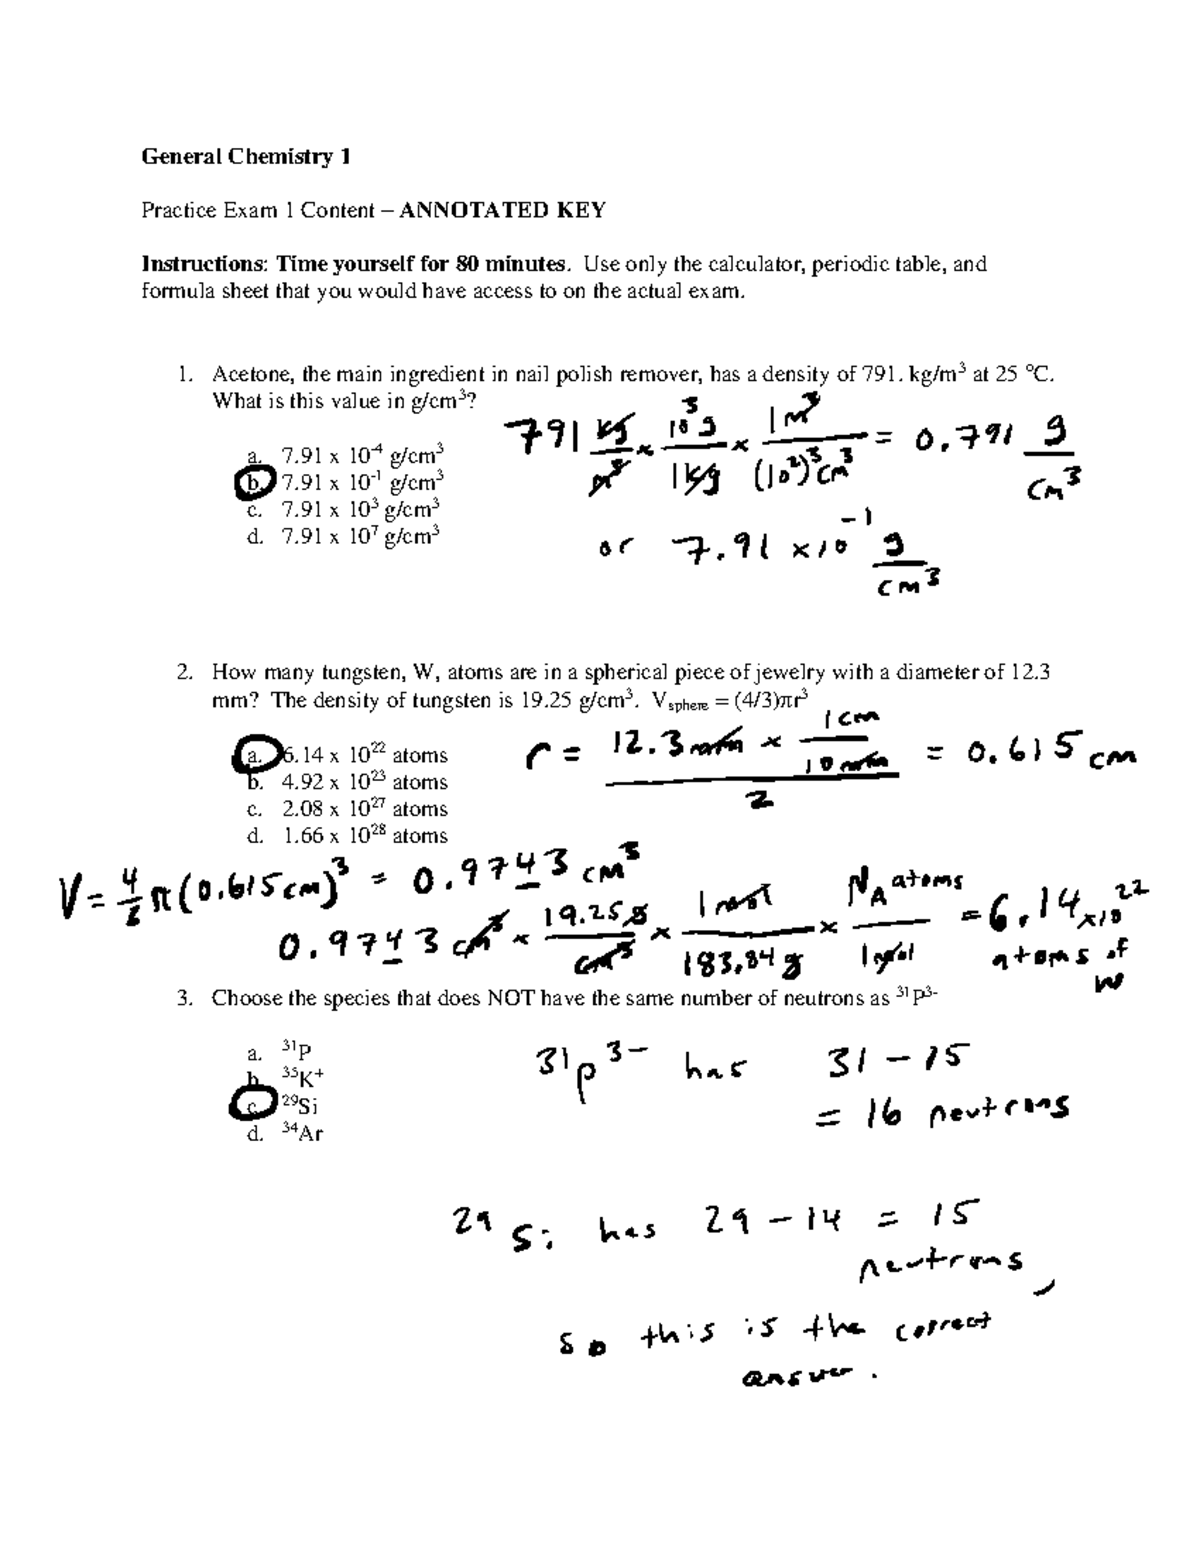 General Chemistry 1
Practice Exam 1 Content – ANNOTATED KEY
Instructions: Time yourself for 80 minutes. Use only the calculator, periodic table, and
formula sheet that you would have access to on the actual exam.
1. Acetone, the main ingredient in nail polish remover, has a density of 791. kg/m³ at 25 °C.
What is this value in g/cm³?
a. 7.91 x 10⁻⁴ g/cm³
b. 7.91 x 10⁻¹ g/cm³
c. 7.91 x 10³ g/cm³
d. 7.91 x 10⁷ g/cm³
791 kg/m³ × 10³ g/1 kg × 1 m³/(10²)³ cm³ = 0.791 g/cm³
or 7.91 × 10⁻¹ g/cm³
2. How many tungsten, W, atoms are in a spherical piece of jewelry with a diameter of 12.3
mm? The density of tungsten is 19.25 g/cm³. Vsphere = (4/3)πr³
a. 6.14 x 10²² atoms
b. 4.92 x 10²³ atoms
c. 2.08 x 10²⁷ atoms
d. 1.66 x 10²⁸ atoms
r = 12.3 mm × 1 cm/10 mm / 2 = 0.615 cm
V = 4/3 π (0.615 cm)³ = 0.9743 cm³
0.9743 cm³ × 19.25 g/cm³ × 1 mol/183.84 g × NA atoms/1 mol = 6.14 × 10²² atoms of W
3. Choose the species that does NOT have the same number of neutrons as ³¹P³⁻
a. ³¹P
b. ³⁵K⁺
c. ²⁹Si
d. ³⁴Ar
³¹P³⁻ has 31 – 15
= 16 neutrons
²⁹Si has 29 – 14 = 15
neutrons,
so this is the correct
answer.